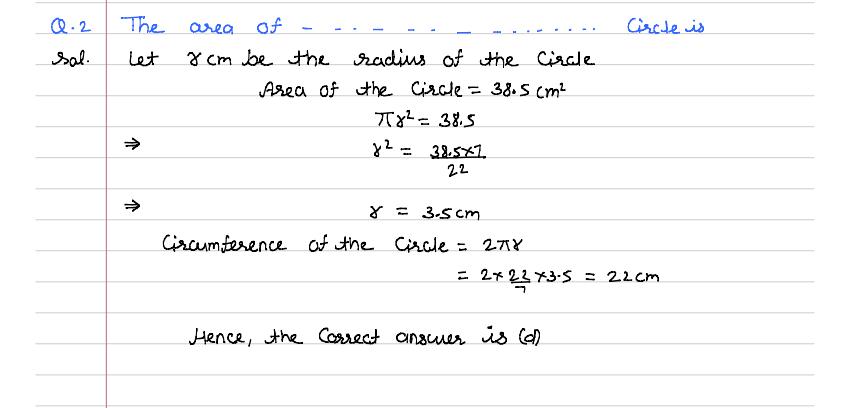 Q.2 The area of - - - - - - - - - - ........ Circle is
Sol. Let r cm be the radius of the Circle
Area of the Circle = 38.5 cm²
πr² = 38.5
⇒ r² = 38.5×7/22
⇒ r = 3.5 cm
Circumference of the Circle = 2πr
= 2×22/7×3.5 = 22 cm
Hence, the Correct answer is (d)